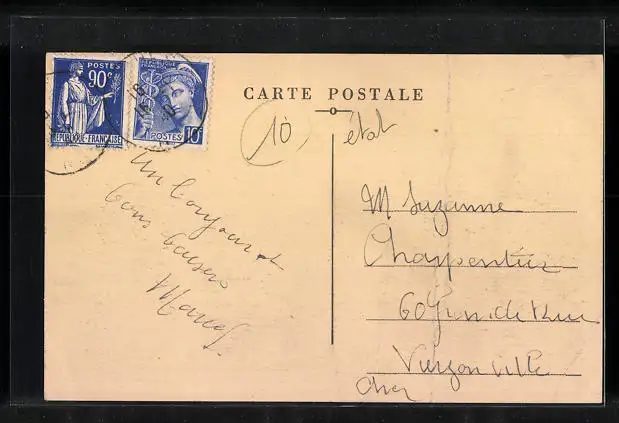 POSTES
90c
REPUBLIQUE-FRANÇAISE
REPUBLIQUE FRANÇAISE
POSTES 10c
CARTE POSTALE
10, etat
Un bonjour et
bons baisers
Marcel
M Suzanne
Charpentier
60
Vierzon ville
Cher